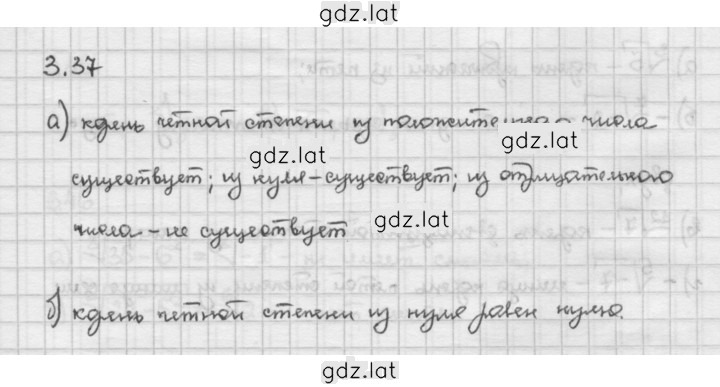 gdz.lat
3.37
а) корень чётной степени из положительного числа
gdz.lat
gdz.lat
существует; из нуля - существует; из отрицательного
числа - не существует
gdz.lat
б) корень четной степени из нуля равен нулю.
gdz.lat